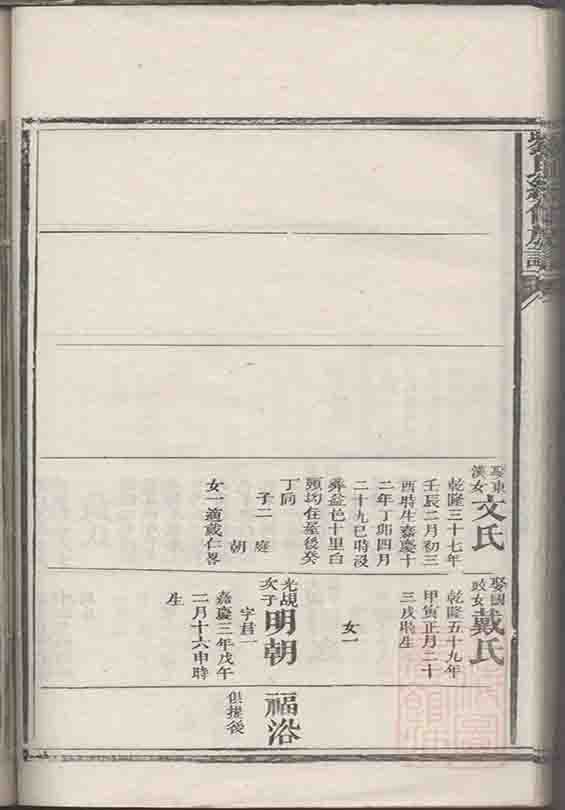 娶東
漢女
文氏
乾隆三十七年
壬辰二月初三
酉時生嘉慶十
二年丁卯四月
二十九巳時沒
葬益邑十里白
頭坳住屋後癸
丁向
子二 庭
朝
女一適戴仁畧
娶國
政女
戴氏
乾隆五十九年
甲寅正月二十
三戌時生
女一
光覘
次子
明朝
字昌一
嘉慶三年戊午
二月十六申時
生
福浴
俱撫後